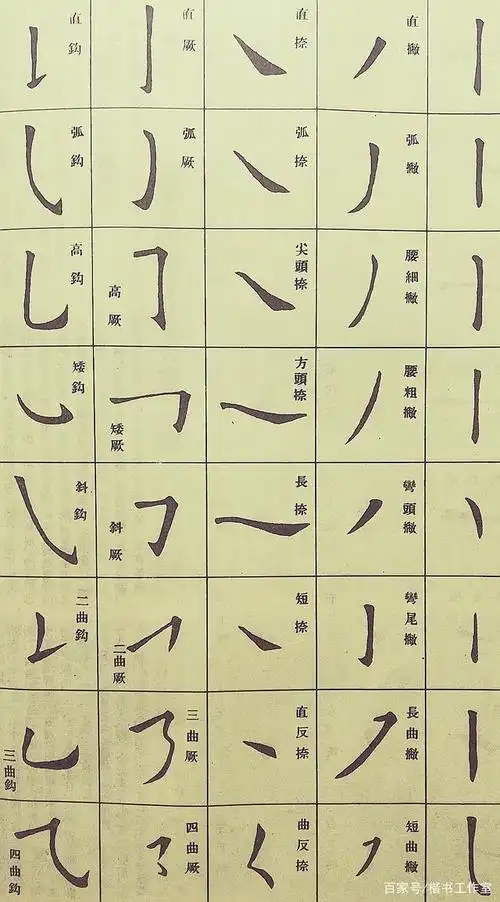 直撇
弧撇
腰細撇
腰粗撇
彎頭撇
彎尾撇
長曲撇
短曲撇
直捺
弧捺
尖頭捺
方頭捺
長捺
短捺
直反捺
曲反捺
直厥
弧厥
高厥
矮厥
斜厥
二曲厥
三曲厥
四曲厥
直鈎
弧鈎
高鈎
矮鈎
斜鈎
二曲鈎
三曲鈎
四曲鈎
百家号/楷书工作室